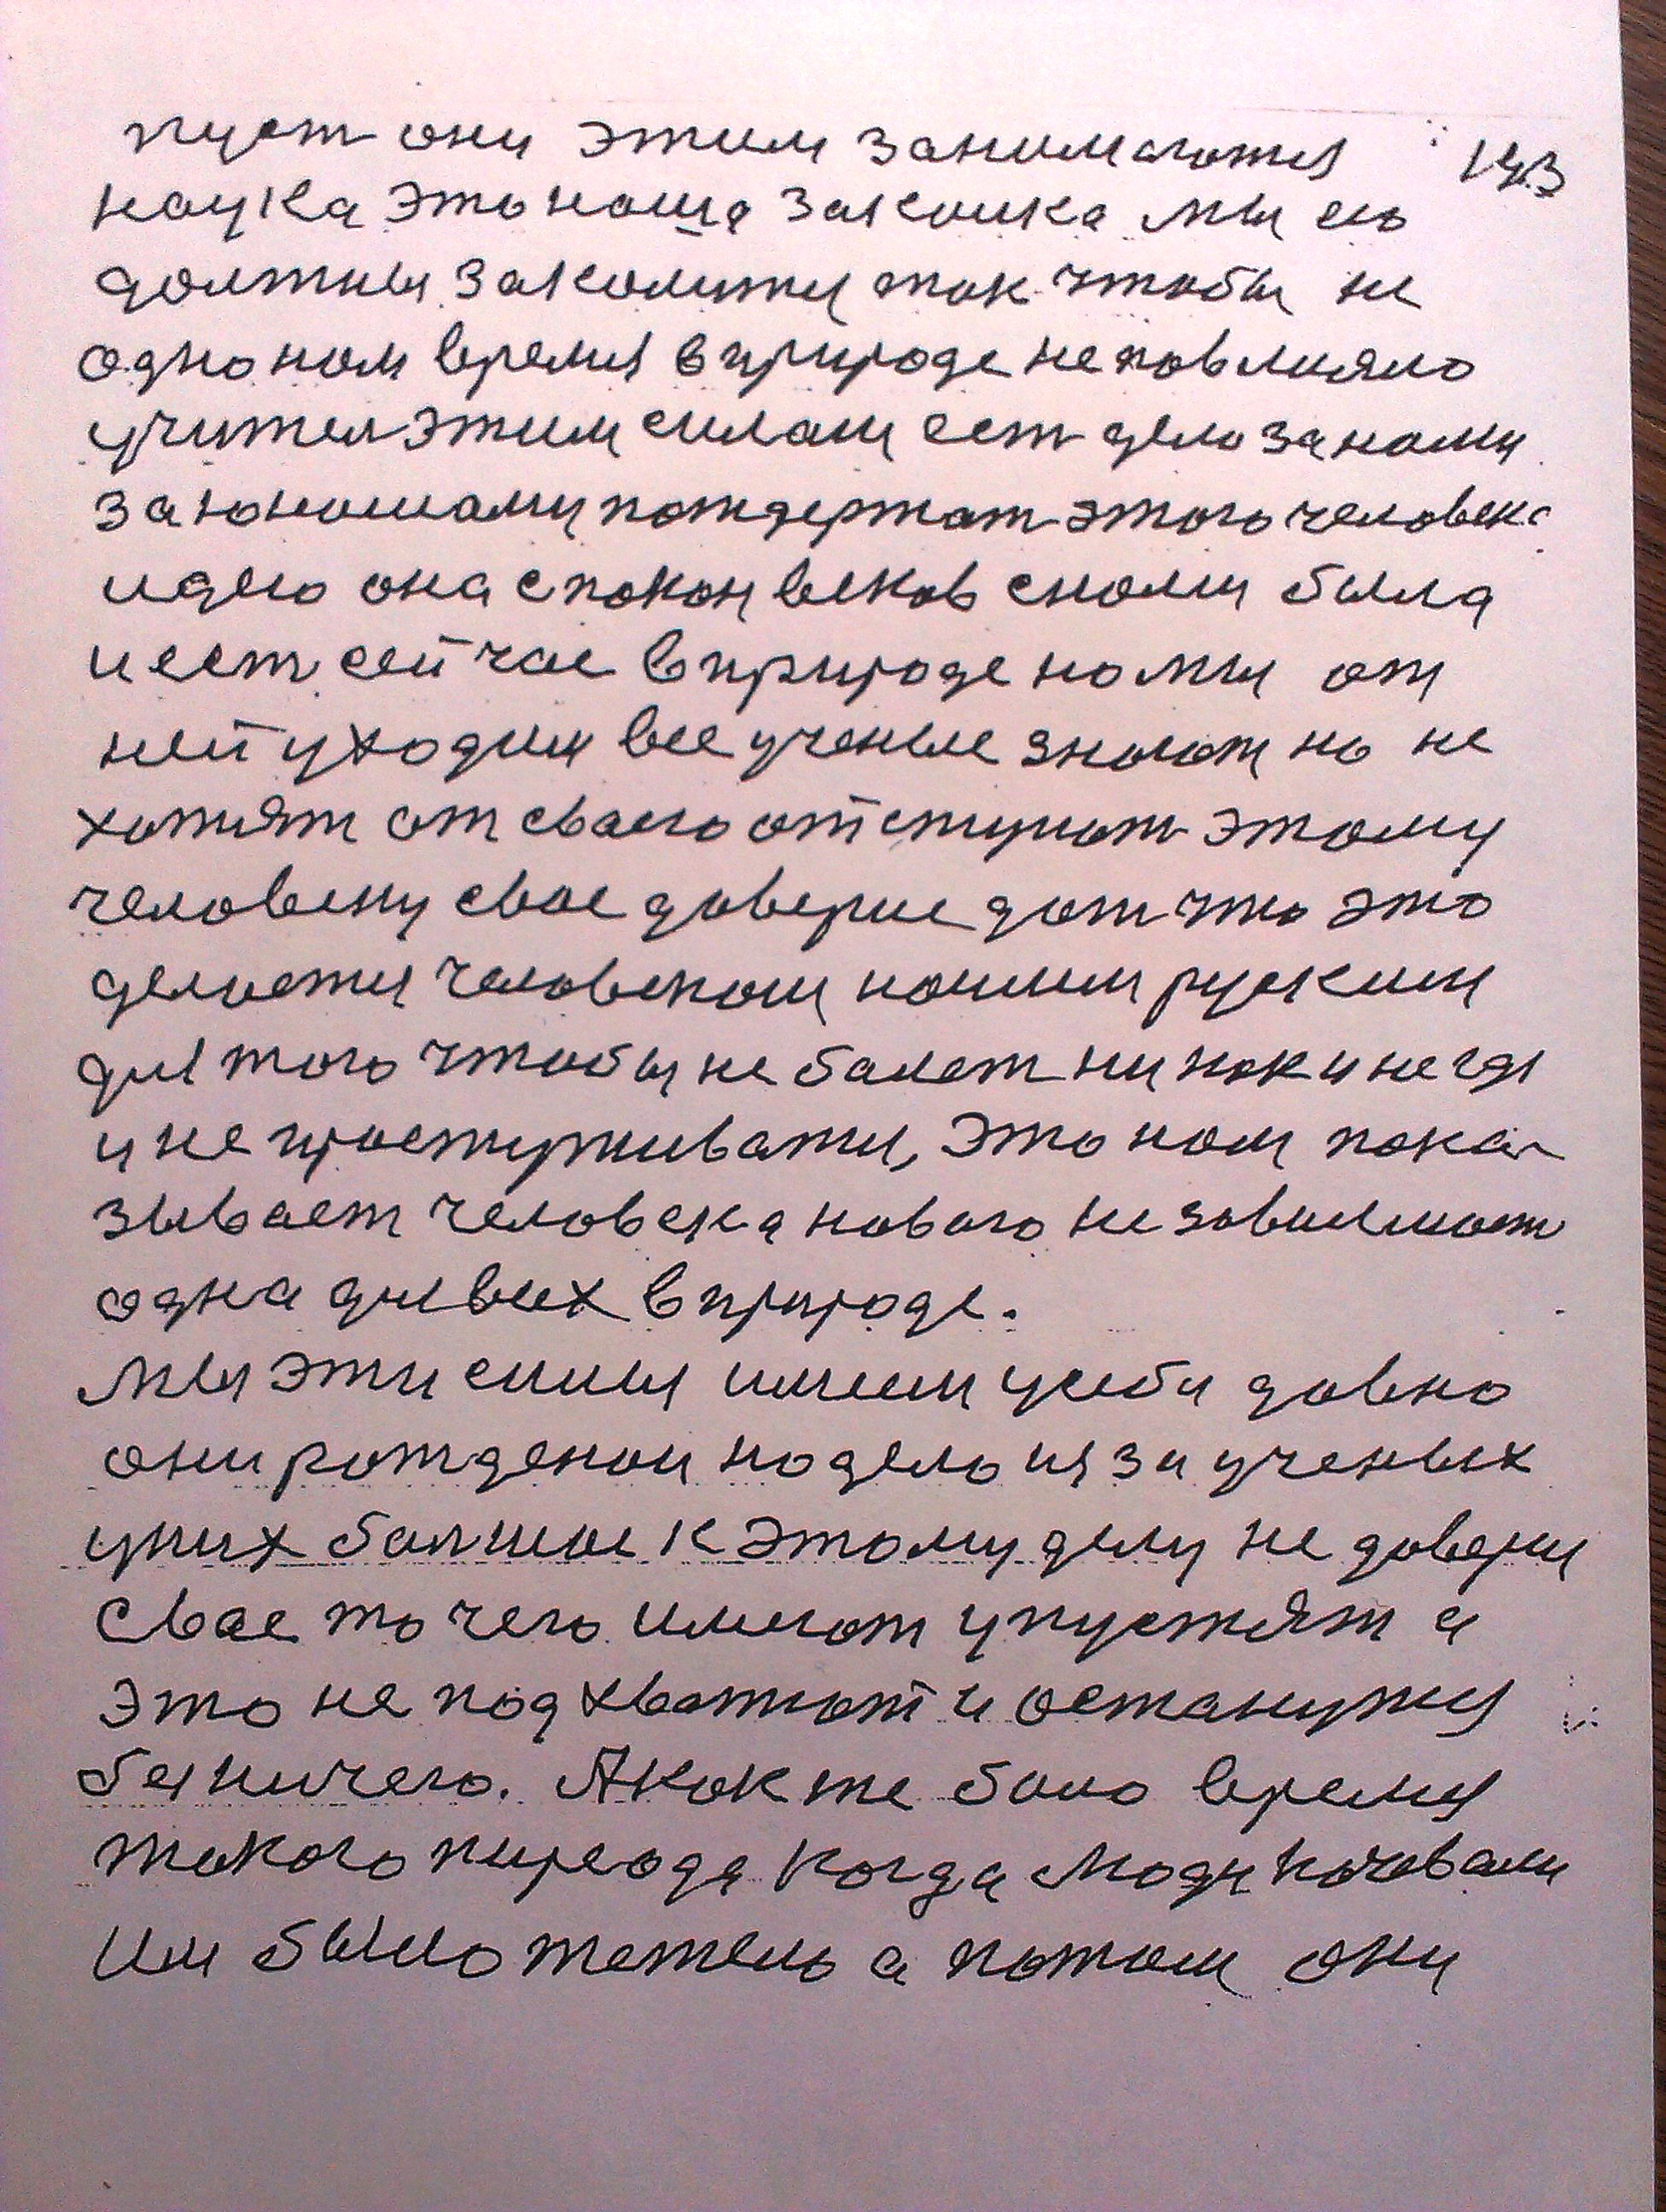 пуст они этим занимаются 143
наука это наша закалка мы ею
должны закалится так чтобы не
одно нам время в природе не повлияло
учителя этим силам ест дело за нами
за юношами потдержат этого человека
идею она спокон веков снами была
и ест сейчас в природе но мы от
ней уходим все ученые знают но не
хотят от сваего отступат этому
человеку свае доверие дат что это
делается человеком нашим руским
для того чтобы не балет ни как и не где
и не простуживатся, это нам пока
зывает человека новаго независимаст
одна для всех в природе.
Мы эти силы имеем усебя давно
они рожденаи но дело из за ученых
уних балшое к этому делу не довери
Свае то чего имеют упустят а
это не подхватют и останутся
без ничего. А как же было время
такого пиреода когда люди кочевали
им было тежело а потом они